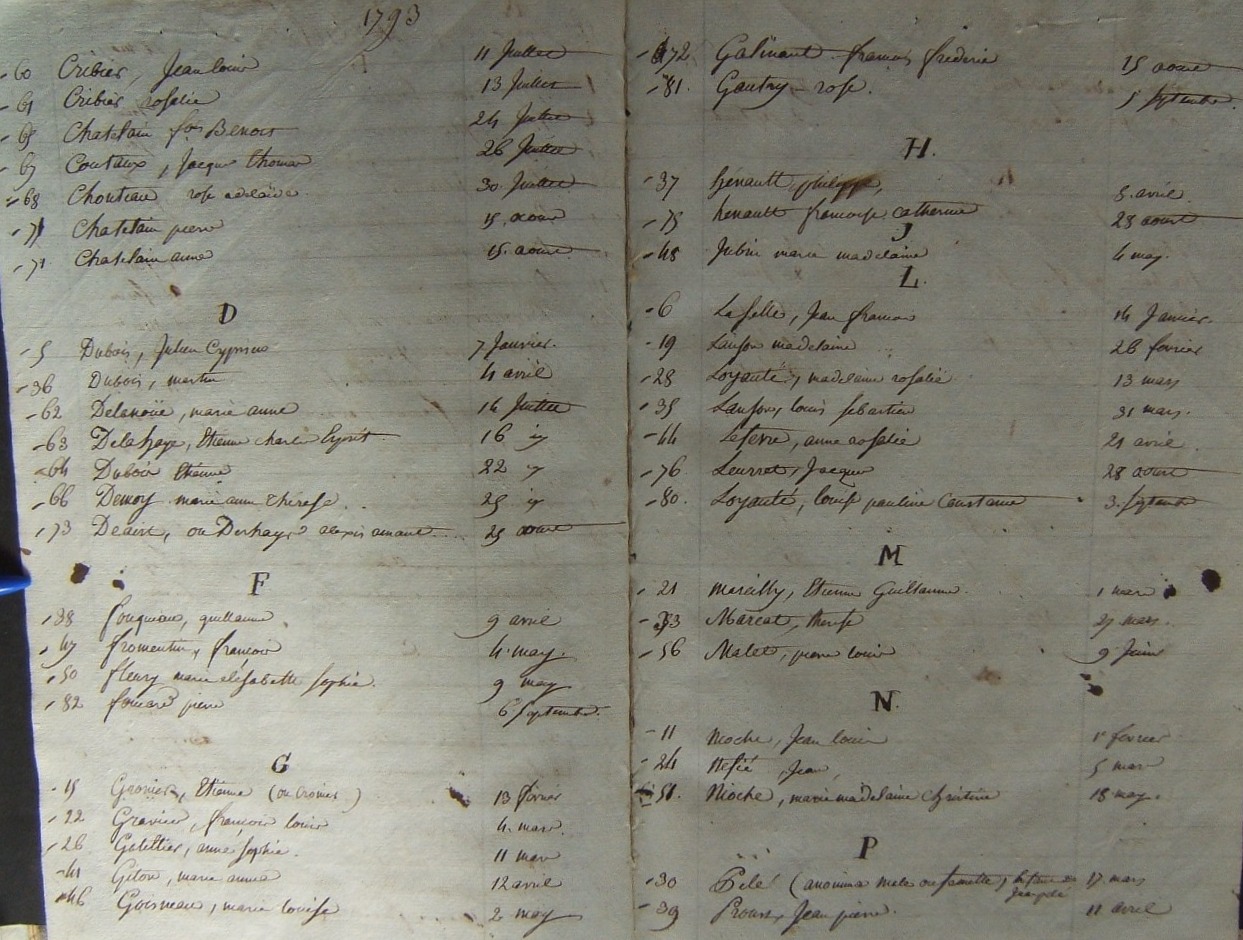 1793
-60 Cribier, Jean louis 11 Juillet
-61 Cribier rosalie 13 Juillet
Chatelain fois Benoit 24 Juillet
-67 Coutaux, Jacque thomas 26 Juillet
-68 Chouteau rose adelaïde 30 Juillet
-71 Chatelain pierre 15 aout
-71 Chatelain anne 15 aout
D
-5 Dubois, Julien Cyprien 7 Janvier.
-36 Dubois, martin 4 avril
-62 Delanoüe, marie anne 14 Juillet
-63 Delahaye, Etienne charle 16
-64 Dubois Etienne 22
-66 Demoy marie anne therese 25
-73 ou Deshayes alexis amant 25 aout
F
-38 fouqueau, guillaume 9 avril
-47 fromentin, francois 4 may.
-50 fleury marie elisabette sophie. 9 may
-82 foucard pierre 6 septembre.
G
-15 Gronier, Etienne (ou Cronier) 13 fevrier
-22 Gravier, francois louis 4 mars.
-26 Galettier, anne sophie. 11 mars
-41 Giton, marie anne 12 avril
-46 Goismeau, marie louise 2 may
-72 Galinant francois frederic 15 aout
-81. Gautry rose. 5 septembre
H.
-37 henault, philippe, 8 avril
-75 henault francoise catherine 28 aout
J
-48 Jubin marie madelaine 4 may.
L.
-6 Lafille, Jean francois 14 Janvier.
-19 Lanson madelaine 26 fevrier
-28 Loyauté, madelaine rosalie 13 mars
-35 Lanson, louis sebastien 31 mars.
-44 Lefevre, anne rosalie 21 avril
-76 Leurret, Jacque 28 aout
-80. Loyauté, louise pauline Constance 3. septembre
M
-21 Marcilly, Etienne Guillaume. 1 mars
-33 Marcat, therese 27 mars.
-56 Malet, pierre louis 9 Juin
N.
-11 Nioche, Jean louis 1r fevrier
-24 Jean 5 mars
-51. Nioche, marie madelaine christine 18 may.
P
-30 Pelé (anonime male ou femelle) 17 mars
-39 Prous, Jean pierre. 11 avril